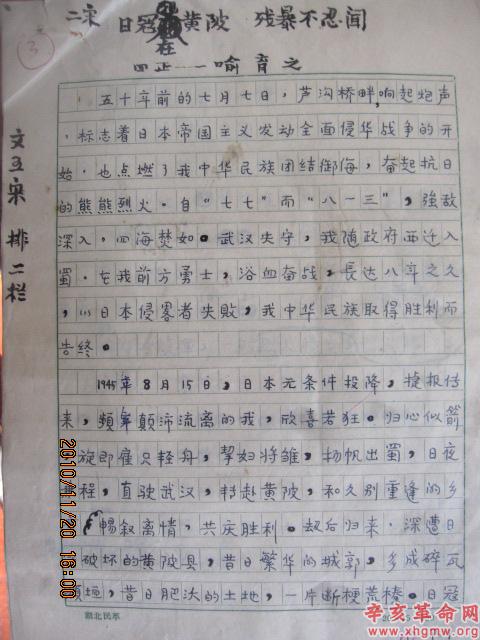 ③
二宋 日冠在黄陂 残暴不忍闻
喻育之
文五宋 排二栏
五十年前的七月七日，芦沟桥畔，响起炮声
，标志着日本帝国主义发动全面侵华战争的开
始，也点燃了我中华民族团结御侮，奋起抗日
的熊熊烈火。自“七七”而“八一三”，強敌
深入，四海焚如。武汉失守，我随政府西迁入
蜀。在我前方勇士，浴血奋战，長达八年之久
，以日本侵畧者失敗，我中华民族取得胜利而
告终。
1945年8月15日，日本无条件投降，捷报传
来，頻年颠沛流离的我，欣喜若狂。归心似箭
，旋即雇只轻舟，挈妇将雏，扬帆出蜀，日夜
程，直驶武汉，转赴黄陂，和久别重逢的乡
畅叙离情，共庆胜利。劫后归来，深遭日
破坏的黄陂县，昔日繁华的城郭，多成碎瓦
垣，昔日肥沃的土地，一片断梗荒榛。日冠
湖北民革
2010/11/20 16:00
辛亥革命网
www.xhgmw.org